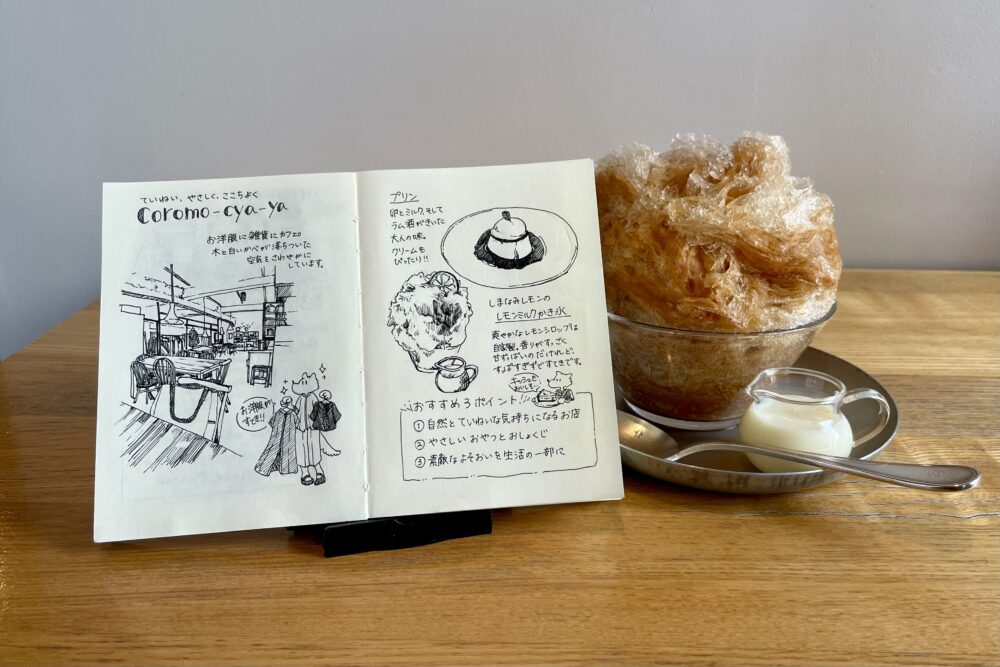 ていねい、やさしく、ここちよく
Coromo-cya-ya
お洋服に雑貨にカフェ。
木と白いかべが落ちついた
空気をさわやかに
しています。
お洋服が
すてき!!
プリン
卵とミルク、そして
ラム酒がきいた
大人の味。
クリームも
ぴったり!!
しまなみレモンの
レモンミルクかき氷
爽やかなレモンシロップは
自家製。香りがすっごく
甘ずっぱいのだけれど、
すっぱすぎずですてきです。
キッシュも
おいしい
おすすめ3ポイント!
① 自然とていねいな気持ちになるお店
② やさしい おやつと おしょくじ
③ 素敵なよそおいを生活の一部に